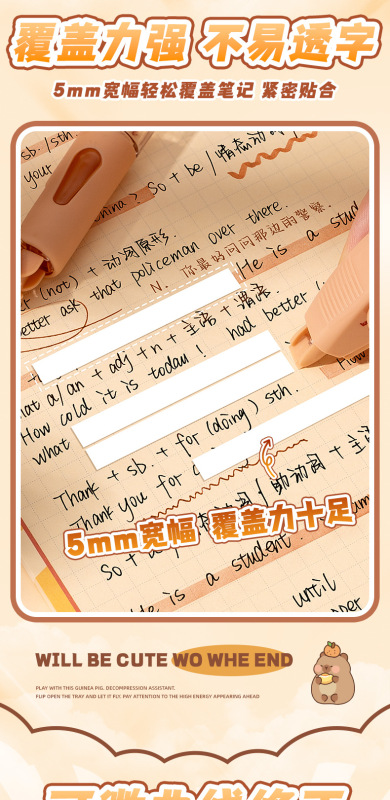 覆盖力强 不易透字
5mm宽幅轻松覆盖笔记 紧密贴合
sb./sth.
your
china> So + be / 情态动词
(not) + 动词原形.
policeman over there.
better ask that
N. 你最好问问那边的警察.
He is a stud
had better
What a/an + adj + n + 主语 + 谓语.
How cold it is today!
what
Thank + sb. + for (doing) sth.
Thank you for
So + 助动词 + 主
5mm宽幅 覆盖力十足
He is a student.
until
WILL BE CUTE WO WHE END
PLAY WITH THIS GUINEA PIG. DECOMPRESSION ASSISTANT.
FLIP OPEN THE TRAY AND LET IT FLY. PAY ATTENTION TO THE HIGH ENERGY APPEARING AHEAD